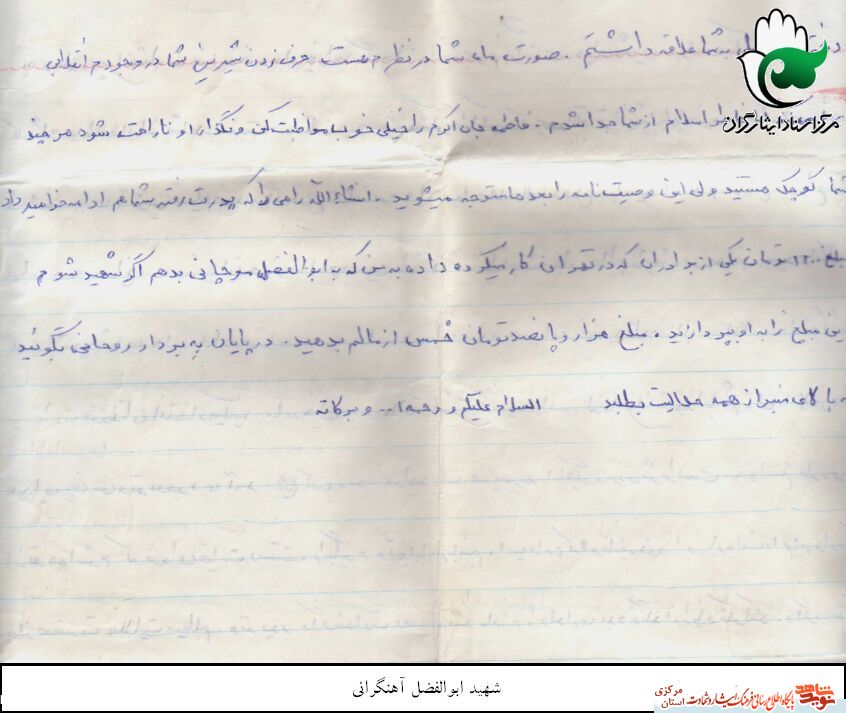 به شما علاقه داشتم . صورت ماه شما در نظرم هست حرف زدن شیرین شما در وجودم انقلابی
مرکز اسناد ایثارگران
اسلام از شما جدا شدم . فاطمه جان اکرم را خیلی خوب مواظبت کن و نگذار او ناراحت شود هر چند
شما کوچک هستید ولی این وصیت نامه را بعدها متوجه میشوید . انشاءالله راهی را که پدرت رفته شما هم ادامه خواهید داد
مبلغ تومان یکی از برادران که در تهران کار میکرده داده به من که به ابوالفضل بدهم اگر شهید شوم
این مبلغ را به او بپردازید . مبلغ هزار و پانصد تومان خمس از مالم بدهید . در پایان به برادر روحانی بگوئید
بالای منبر از همه حلالیت بطلبد السلام علیکم و رحمه ا... و برکاته
شهید ابوالفضل آهنگرانی
نوید شاهد پایگاه اطلاع رسانی فرهنگ ایثار و شهادت استان مرکزی